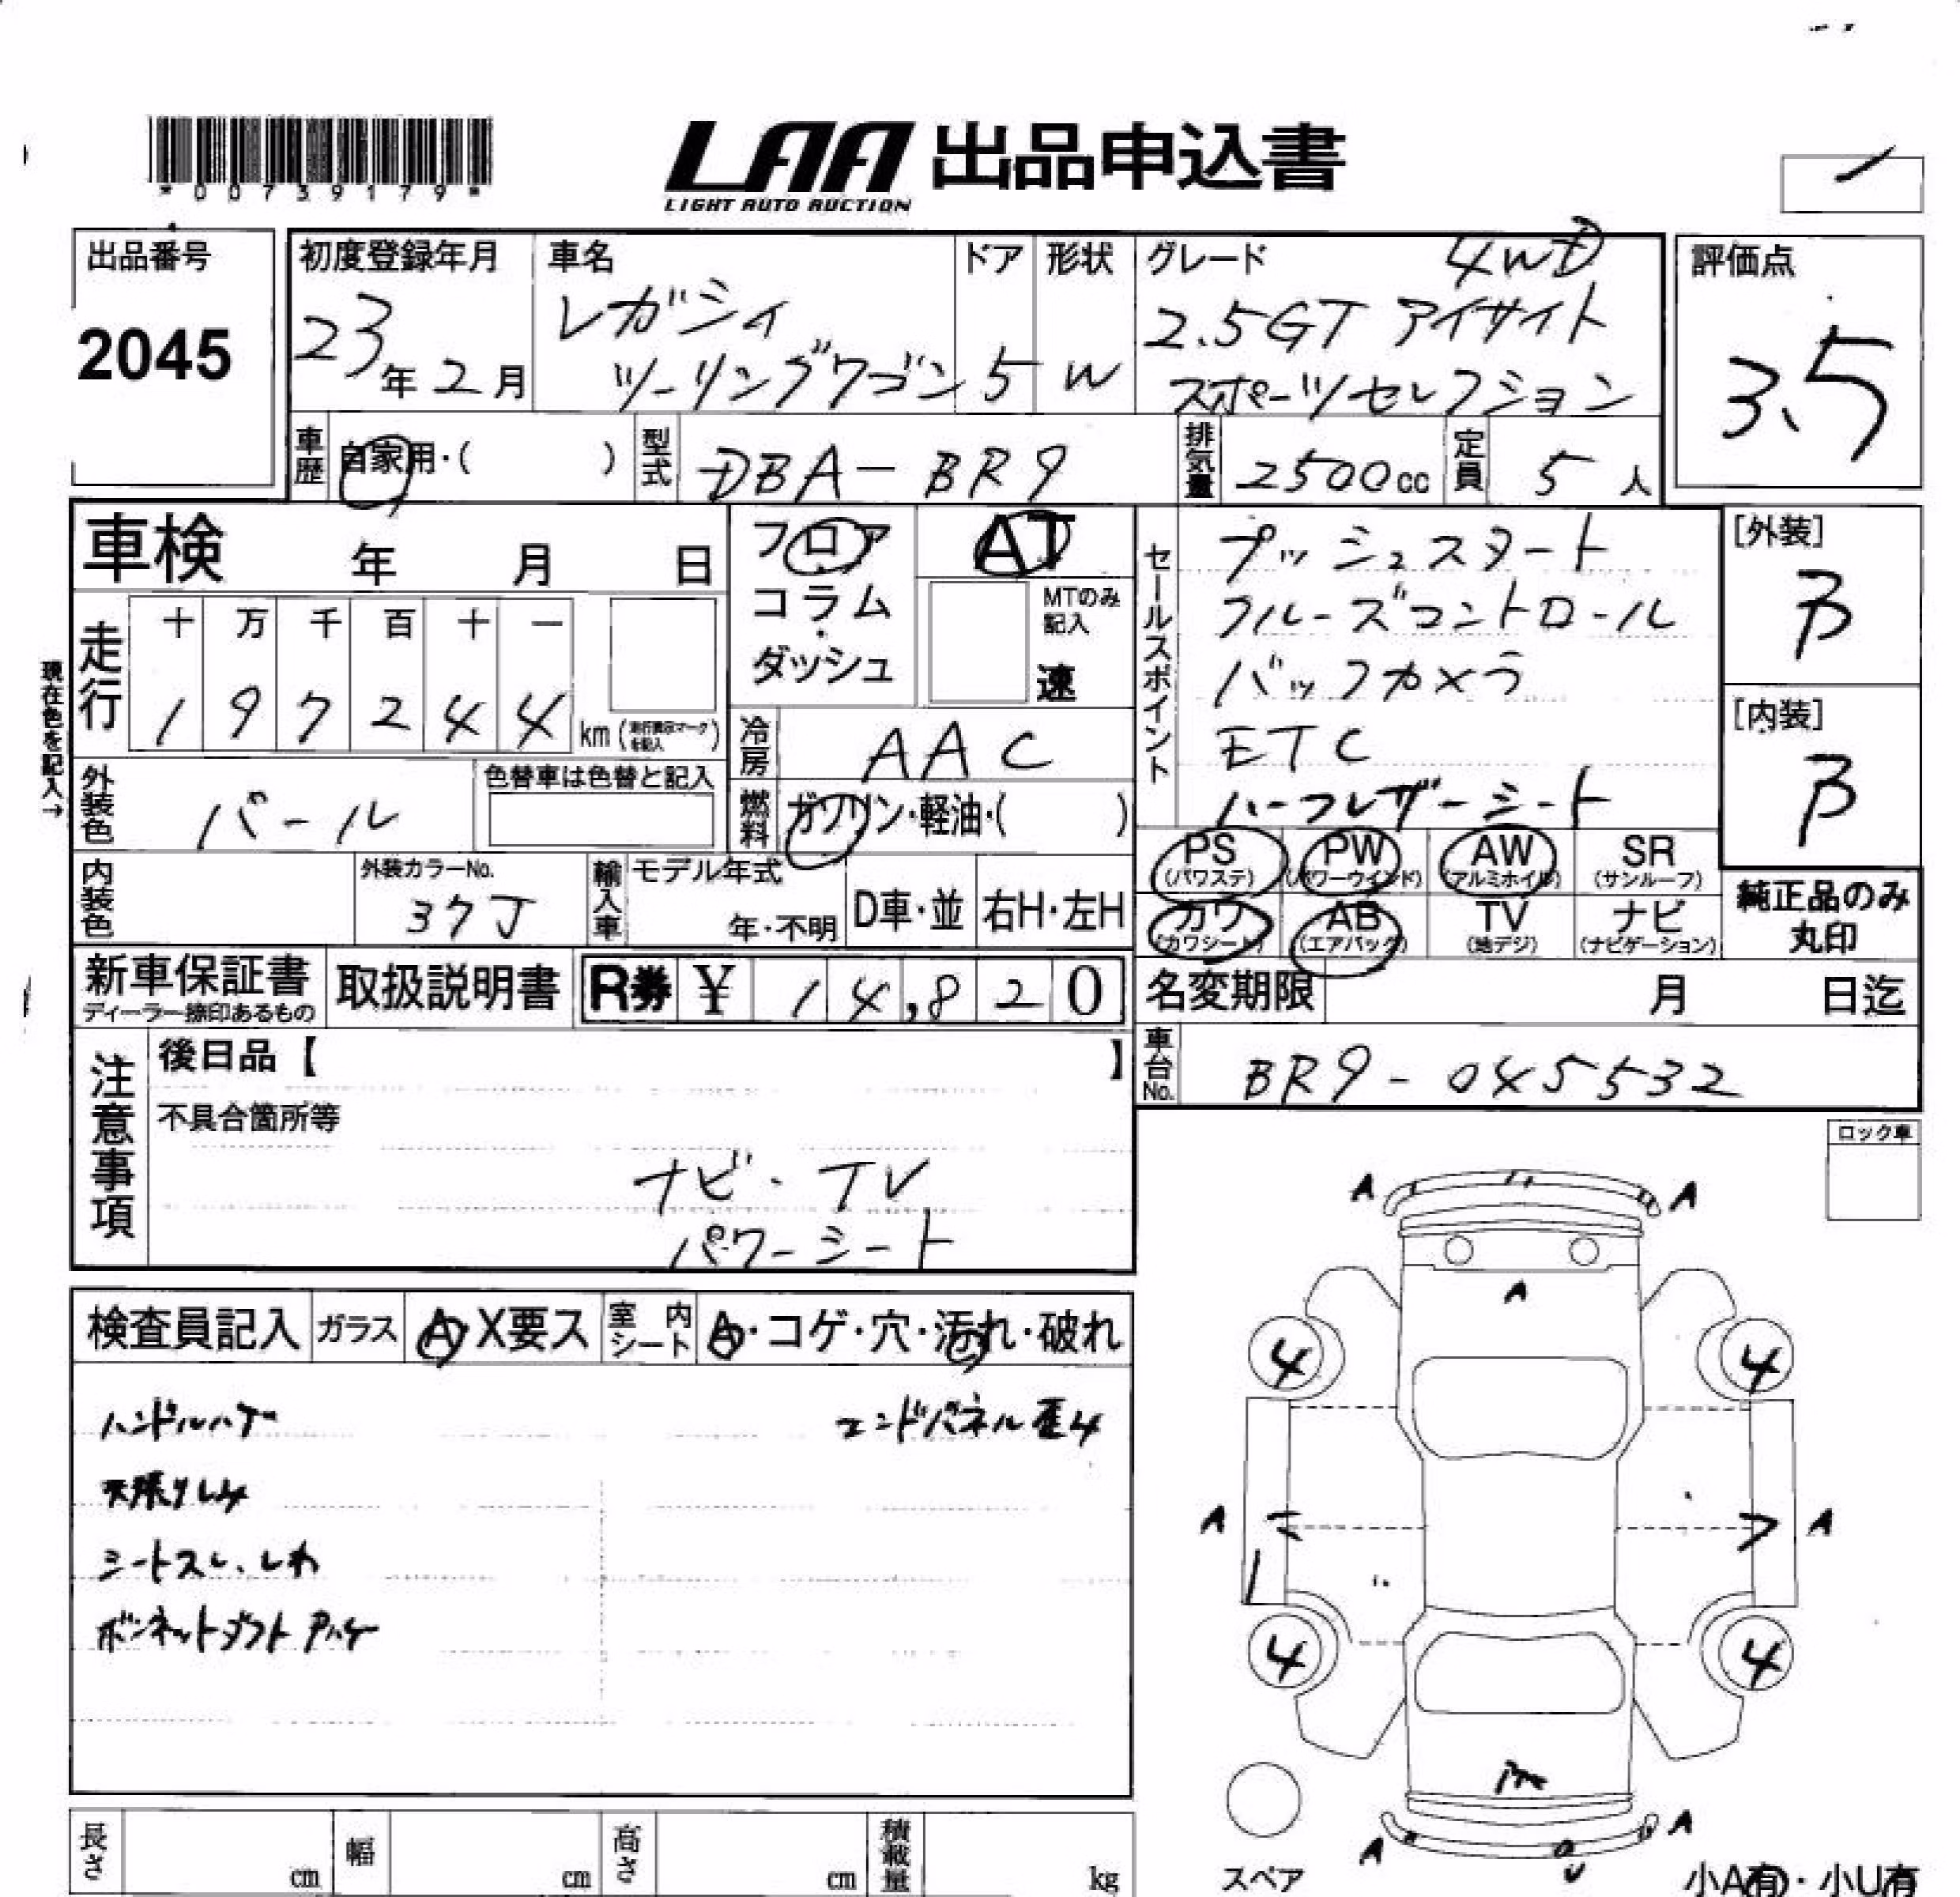 *00739179*
LAA 出品申込書
LIGHT AUTO AUCTION
出品番号
2045
初度登録年月
23年2月
車名
レガシィ
ツーリングワゴン
ドア
5
形状
W
グレード
4WD
2.5GT アイサイト
スポーツセレクション
評価点
3.5
車歴
自家用・( )
型式
DBA-BR9
排気量
2500cc
定員
5人
車検 年 月 日
フロア
コラム
・
ダッシュ
AT
MTのみ
記入
速
現在色を記入→
走行
十 万 千 百 十 一
1 9 7 2 4 4 km
冷房
AAC
燃料
ガソリン・軽油・( )
外装色
パール
色替車は色替と記入
内装色
外装カラーNo.
37J
輸入車
モデル年式
年・不明
D車・並
右H・左H
セールスポイント
プッシュスタート
クルーズコントロール
バックカメラ
ETC
ハーフレザーシート
[外装]
B
[内装]
B
PS
(パワステ)
PW
(パワーウインド)
AW
(アルミホイル)
SR
(サンルーフ)
カワ
(カワシート)
AB
(エアバック)
TV
(地デジ)
ナビ
(ナビゲーション)
純正品のみ
丸印
新車保証書
ディーラー捺印あるもの
取扱説明書
R券 ¥ 14,820
名変期限 月 日迄
車台No.
BR9-045532
注意事項
後日品【 】
不具合箇所等
ナビ・TV
パワーシート
ロック車
検査員記入
ガラス
A・X要ス
室内
シート
A・コゲ・穴・汚れ・破れ
ハンドルハゲ
エンドパネル歪み
天張りしみ
シートスレ、しわ
ボンネットダクト
A
A
A
4
4
A
A
4
4
A
A
スペア
小A有・小U有
長さ cm
幅 cm
高さ cm
積載量 kg